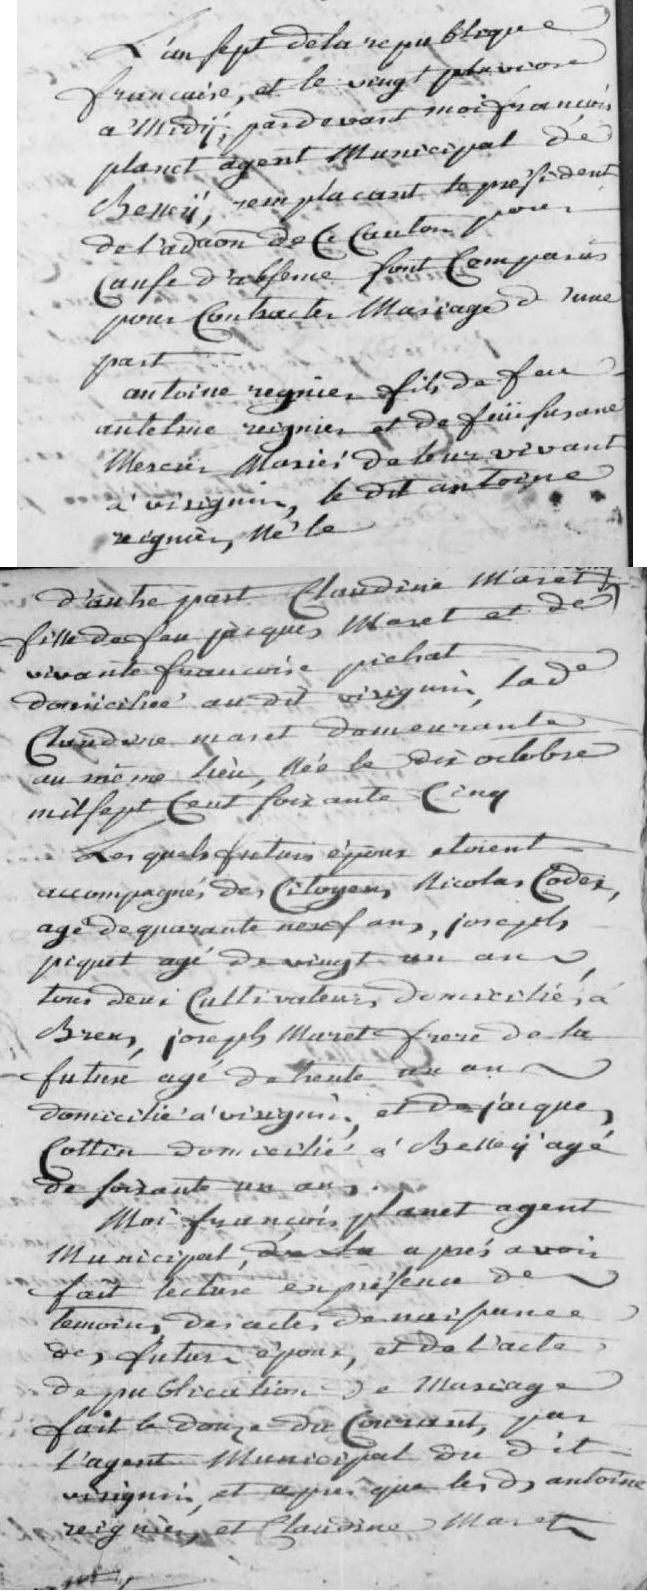 L'an sept de la republique
francaise, et le vingt pluviose
a Midÿ, pardevant moi francois
planet agent Municipal de
Belleÿ, remplacant le president
de l'adaon de Ce Canton pour
Cause d'absence sont Comparus
pour Contracter Mariage d'une
part
antoine regnier fils de feu
antelme reignier et de feüe susane
Mercier Mariés de leur vivant
a virignin, le dit antoine
reignier, Né le
d'autre part Claudine Maret
fille de feu jacques Maret et de
vivante francoise pichat
domiciliee au dit virignin, lade
Claudine maret demeurante
au même lieu, Née le dix octobre
mil sept Cent soixante Cinq
Lesquels futurs époux etoient
accompagnés des Citoyens Nicolas Coder,
agé de quarante neuf ans, joseph
piquet agé de vingt un an
tous deux Cultivateurs domiciliés a
Brens, joseph Maret frere de la
future agé de trente un an
domicilié a virignin, et de jacques
Cottin domicilié a Belleÿ agé
de soixante un ans.
Moi françois planet agent
Municipal, aprés avoir
fait lecture en présence de
temoins, des actes de naissance
des futurs époux, et de l'acte
de publication de Mariage
fait le douze du Courant, par
l'agent Municipal du dit
virignin, et aprés que les ds antoine
reignier, et Claudine Maret